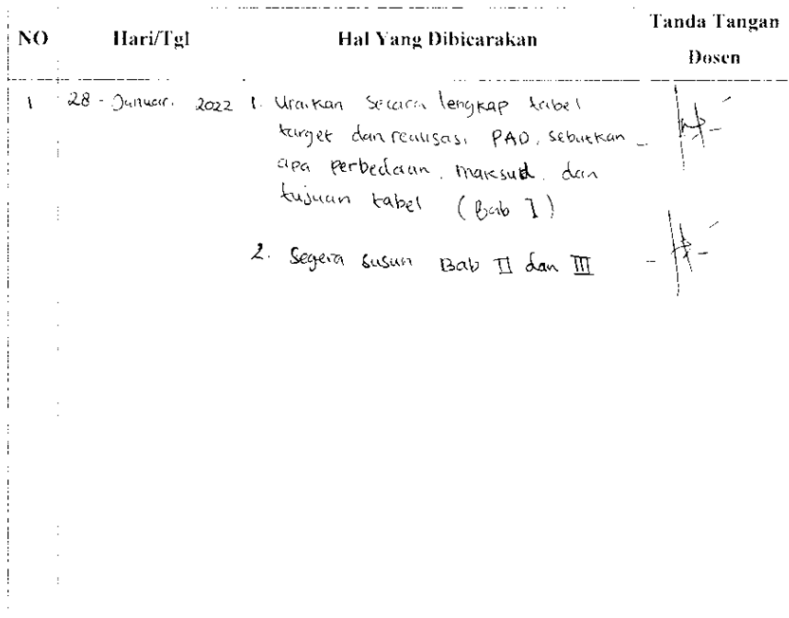 NO Hari/Tgl Hal Yang Dibicarakan Tanda Tangan
Dosen
1 28 - Januari. 2022 1. Uraikan secara lengkap tabel
target dan realisasi PAD, sebutkan
apa perbedaan, maksud, dan
tujuan tabel (Bab I)
2. Segera susun Bab II dan III